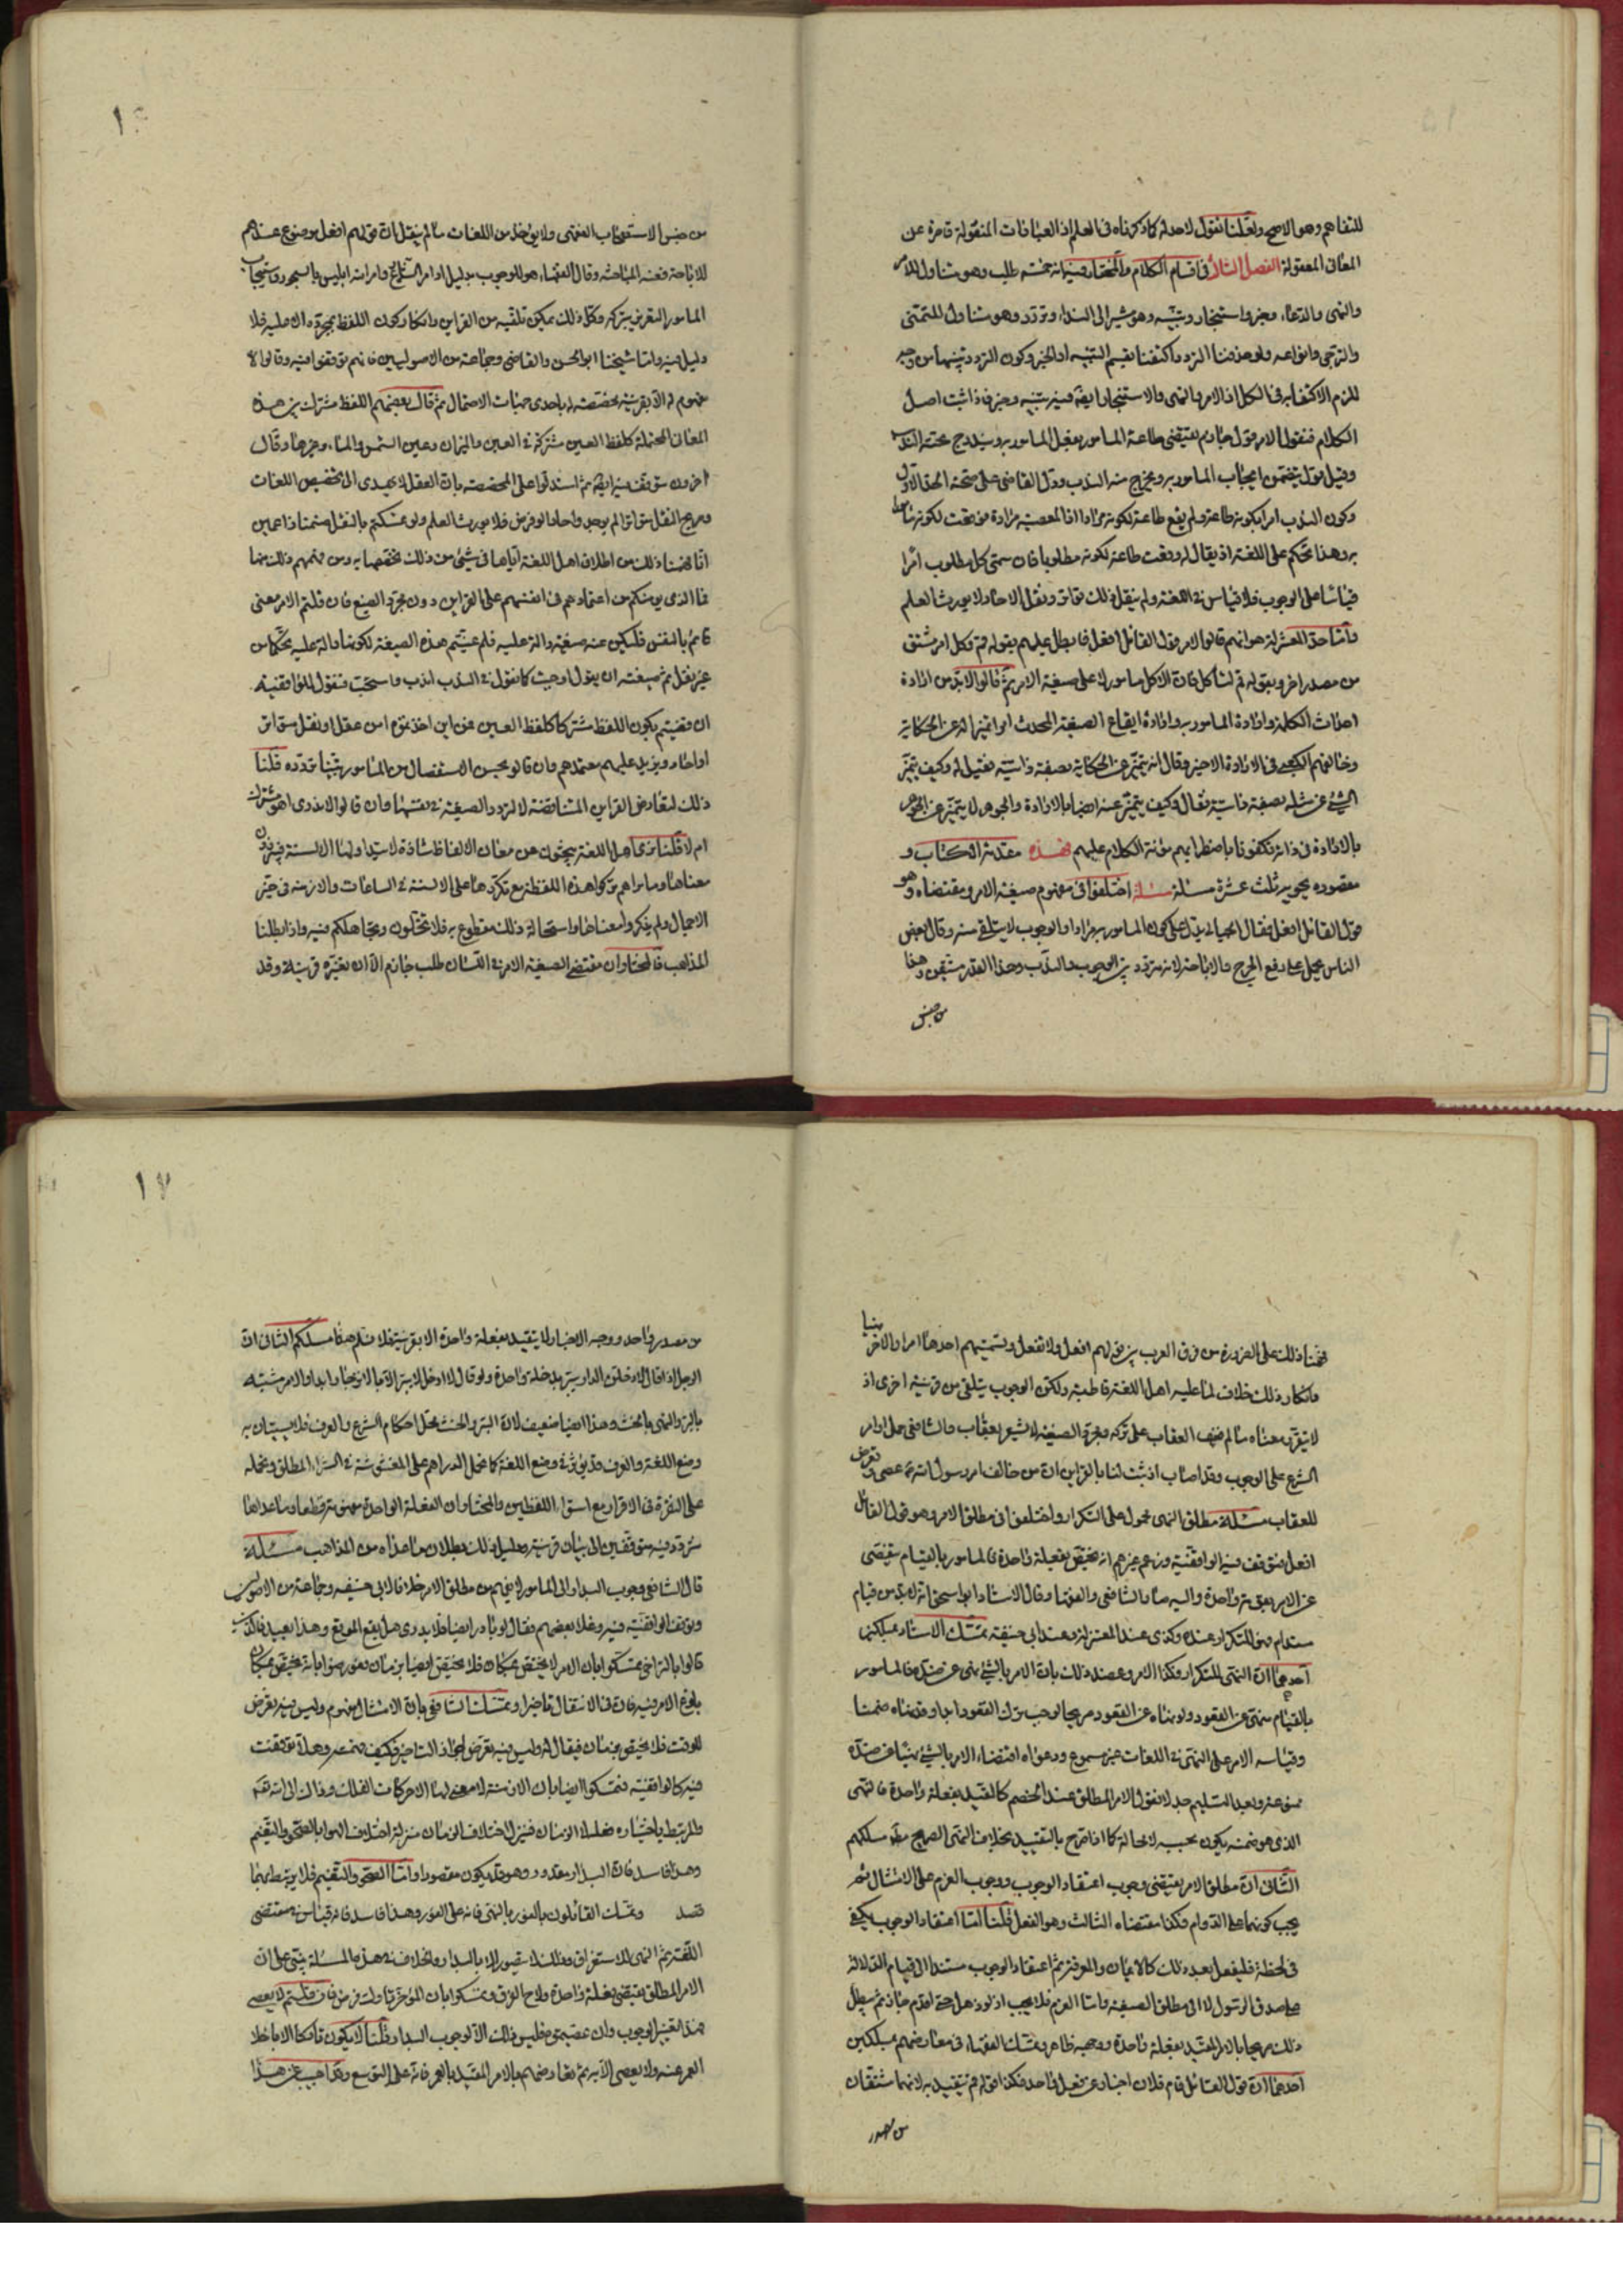 للتفاهم وهو الاصح ولعلنا نقول لا حد له كما ذكرناه في العلم اذ العبارات المنقولة قاصرة عن
المعانى المعقولة الفصل الثالث في اقسام الكلام والمختار فيه انه خمسة طلب وهو متناول للامر
والنهى والدعاء وخبر واستخبار وتنبيه وهو مشير الى النداء وتردد وهو متناول للتمنى
والترجى وانواعه ولو حذفنا التردد واكتفينا بقسم التنبيه او الخبر وكون التردد بينهما من وجه
للزم الاكتفاء به فى الكل اذ الامر والنهى والاستخبار ايضا فيه تنبيه وخبر فاذا ثبت اصل
الكلام فنقول الامر قول جازم يقتضى طاعة المامور بفعل المامور به ويندرج تحته الندب
وقيل قول يتضمن ايجاب المامور به ويخرج منه الندب ودل القاضى على صحة الحد الاول
وكون الندب امرا بكونه طاعة ولم يقع طاعة لكونه مرادا اذ المعصية مرادة فوقعت لكونه مامورا
به وهذا تحكم على اللغة اذ يقال له وقعت طاعة لكونه مطلوبا فان سمى كل مطلوب امرا
قياسا على الوجوب فلا قياس فى اللغة ولم ينقل ذلك تواتر ونقل الاحاد لا يورث العلم
واما حد المعتزلة هو انهم قالوا الامر قول القائل افعل فابطل عليهم بقوله قم وكل امر مشتق
من مصدر اخر وبقوله قم لنأكل فان الاكل مامور له على صيغة الامر ثم قالوا لا بد من ارادة
احداث الكلمة وارادة المامور به وارادة ايقاع الصيغة المحدث امرا تميزا له عن الحكاية
وخالفهم الكعبى فى الارادة الاخيرة وقال انه يتميز عن الحكاية بصفة ذاتية فقيل له وكيف يتميز
الشئ عن مثله بصفة ذاتية فقال وكيف يتميز عنه ايضا بالارادة والجوهر لا يتميز عن الجوهر
بالارادة فى ذاته فكفونا باضطرابهم مؤنة الكلام عليهم فهذه مقدمة الكتاب و
مقصوده يحويه ثلث عشرة مسئلة مسئلة اختلفوا فى مفهوم صيغة الامر ومقتضاه وهو
قول القائل افعل فقال الجبائى يدل على كون المامور به مرادا والوجوب لا يتلقى منه وقال بعض
الناس يحمل على رفع الحرج والاباحة لانه متردد بين الوجوب والندب وهذا القدر متيقن وهذا
من جنس
من جنس الاستصحاب الفقهى ولا يؤخذ من اللغات ما لم ينقل ان قولهم افعل موضوع عندهم
للاباحة فعنه المباحثة وقال الفقهاء هو للوجوب بدليل اوامر الشارع وامر الله ابليس بالسجود واستيجاب
المامور التقريع بتركه وكل ذلك يمكن تلقيه من القراين وانكار كون اللفظ بمجرده دالا عليه فلا
دليل فيه واما شيخنا ابو الحسن والقاضى وجماعة من الاصوليين فانهم توقفوا فيه وقالوا لا
مفهوم له الا بقرينة مخصصة له باحدى جهات الاحتمال ثم قال بعضهم اللفظ مشترك بين هذه
المعانى المحتملة كلفظ العين مشتركة فى العين والميزان وعين الشمس والماء وغيرها وقال
اخرون نتوقف فيه ايضا ثم استدلوا على المخصصة بان العقل لا يهدى الى تخصيص اللغات
وصريح النقل متواترا لم يوجد واحاد لو فرض فلا يورث العلم ولو تمسكتم بالنقل ضمنا زاعمين
انا فهمنا ذلك من اطلاق اهل اللغة اياها فى شئ من ذلك تخصصا به ومن فهمهم ذلك منها
فما الذى يومنكم من اعتمادهم فى انفسهم على القراين دون مجرد الصيغ فان قلتم الامر معنى
قائم بالنفس فلتكن عنه صيغة دالة عليه فلم عينتم هذه الصيغة لكونها دالة عليه تحكما من
غير نقل ثم صيغته ان يقول اوجبت كما نقول فى الندب اندب واستحب فنقول للواقفية
ان قضيتم بكون اللفظ مشتركا كلفظ العين فمن اين اخذتموه امن عقل او نقل متواتر
او احاد ويزيد عليهم معتمدهم وان قالوا يحسن الاستفصال من المامور تنبيا تردده قلنا
ذلك لتعارض القراين المتناقضة لا لتردد الصيغة فى نفسها وان قالوا لا ندرى اهو مشترك
ام لا قلنا نرى اهل اللغة يبحثون عن معانى الالفاظ شاذة لا يتداولها الالسنة فيعرفون
معناها وما نراهم تركوا هذه اللفظة مع تكررها على الالسنة فى الساعات والازمنة فى حيز
الاجمال ولم يذكروا معناها واستحالة ذلك مقطوع به فلا تختلون وتجاهلكم فيه واذا بطلنا
المذاهب فالمختار ان مقتضى الصيغة الامر فى اللسان طلب جازم الا ان تغيره قرينة وقد
فهمنا ذلك على الضرورة من فرق العرب بين قولهم افعل ولا تفعل وتسميتهم احدهما امرا والاخر نهيا
وانكار ذلك خلاف لما عليه اهل اللغة قاطبة ولكن الوجوب يتلقى من قرينة اخرى اذ
لا يتقرر معناه ما لم يخف العقاب على تركه ومجرد الصيغة لا تشير بعقاب والشافعى حمل اوامر
الشرع على الوجوب وقد اصاب اذ ثبت لنا بالقراين ان من خالف امر رسول الله صلعم عصى وتعرض
للعقاب مسئلة مطلق النهى محمول على التكرار واختلفوا فى مطلق الامر وهو قول القائل
افعل فتوقف فيه الواقفية وزعم غيرهم انه يختص بفعلة واحدة فالمامور بالقيام يتقصى
عن الامر بقومة واحدة واليه صار الشافعى والفقها وقال الاستاد ابو اسحق انه لا بد من قيام
مستدام فهى للتكرار عنده وكذى عند المعتزلة وعند ابى حنيفة تمسك الاستاد بمسلكين
احدهما ان النهى للتكرار فكذا الامر وعضد ذلك بان الامر بالشئ نهى عن ضده فالمامور
بالقيام منهى عن القعود ولو نهاه عن القعود صريحا لوجب ترك القعود ابدا وقد نهاه ضمنا
وقياسه الامر على النهى فى اللغات غير مسموع ودعواه اقتضاء الامر بالشئ نهيا عن ضده
ممنوعة وبعد التسليم جدلا نقول الامر المطلق عند الخصم كالمقيد بفعلة واحدة فالنهى
الذى هو ضمنه يكون بحسبه لا محالة كما اذا صرح بالتقييد بخلاف النهى الصريح مطلقا مسلكهم
الثانى ان مطلق الامر يقتضى وجوب اعتقاد الوجوب ووجوب العزم على الامتثال ثم
يجب كونهما على الدوام فكذا مقتضاه الثالث وهو الفعل قلنا اما اعتقاد الوجوب يكفى
فى لحظة فليفعل بعد ذلك كالايمان والمعرفة ثم اعتقاد الوجوب مستند الى قيام الدلالة
على صدق الرسول لا الى مطلق الصيغة واما العزم فلا يجب اذ لو ذهل حتى اقدم جاز ثم يبطل
ذلك صريحا بالامر المقيد بفعلة واحدة ووجهه ظاهر وتمسك الفقهاء فى معارضتهم بمسلكين
احدهما ان قول القائل قام فلان اخبار عن فعل واحد فكذا قوله قم يتقيد به لانهما مشتقان
من مصدر
من مصدر واحد ووجه الاخبار لا يتقيد بفعلة واحدة الا بقرينة فلا نسلم هذا مسلكهم الثانى ان
الرجل اذا قال لادخلن الدار يبر بدخلة واحدة ولو قال لا ادخل لا يبر الا بالانزجار ابدا والامر مشبه
بالبر والنهى بالحنث وهذا ايضا ضعيف لان البر والحنث محل احكام الشرع والعرف فلا يبينان به
وضع اللغة والعرف قد يؤثر فى وضع اللغة كما تحمل الدراهم على المغشوشة فى الشراء المطلق وتحمله
على النقرة فى الاقرار مع استواء اللفظين والمختار ان الفعلة الواحدة مفهومة قطعا وما عداها
متردد فيه متوقفين الى بيان قرينة ودليل ذلك بطلان ما عداه من المذاهب مسئلة
قال الشافعى وجوب البدار الى المامور لا يفهم من مطلق الامر خلافا لابى حنيفة وجماعة من الاصوليين
وتوقف الواقفية فيه وغلا بعضهم فقال لو بادر ايضا فلا يدرى هل يقع الموقع وهذا بعيد فالذين
قالوا بالتراخى تمسكوا بان الامر لا يختص بمكان فلا يختص ايضا بزمان وعورضوا بانه يختص بمكان
بلوغ الامر فيه فان فى الانتقال تاخيرا وتمسك الشافعى بان الامتثال مفهوم وليس فيه تعرض
للوقت فلا يختص بزمان فيقال له وليس فيه تعرض لجواز التاخير فكيف فهمتموه وهلا توقفت
فيه كالواقفية فتمسكوا ايضا بان الازمنة لا معنى لها الا حركات الفلك وذلك الى الله تع
والمرتبط باختياره فعله لا الزمان فنزل اختلاف الزمان منزلة اختلاف الهوا بالصحو والتغيم
وهذا فاسد فان البدار مقدور وهو قد يكون مقصودا واما الصحو والتغيم فلا يرتبط بهما
قصد وتمسك القائلون بالفور بالنهى فانه على الفور وهذا فاسد فانه قياس فى مقتضى
اللغة ثم النهى للاستغراق وذلك لا يتصور الا بالبدار والخلاف فى هذه المسئلة يبتنى على ان
الامر المطلق يقتضى فعلة واحدة ولاح الفرق وتمسكوا بان المؤخر تارك فرض فان قلتم لا يعصى
هذا تغيير الوجوب وان عصيتموه فليس ذلك الا لوجوب البدار قلنا لا يكون تاركا الا باخلاء
العمر عنه ولا يعصى الا به ثم نعارضهم بالامر المقيد بالعمر فانه على التوسع وقد اجيب عن هذا